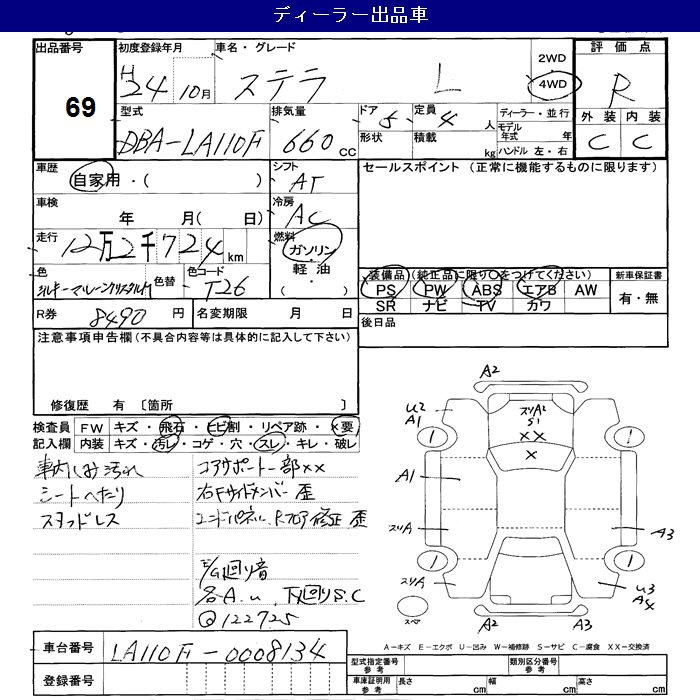 ディーラー出品車
出品番号 初度登録年月 車名・グレード 2WD 評価点
69 H24 10月 ステラ L 4WD R
型式 排気量 ドア 5 定員 4人 ディーラー・並行 外装 内装
DBA-LA110F 660cc 形状 積載 kg モデル年式 年 C C
ハンドル 左・右
車歴 シフト セールスポイント (正常に機能するものに限ります)
自家用・( ) AT
車検 冷房
年 月( 日) AC
走行 燃料
12万2千724km ガソリン・軽油
色 色替 色コード 装備品(純正品に限り○をつけてください) 新車保証書
T26 PS PW ABS エアB AW 有・無
SR ナビ TV カワ
R券 8490円 名変期限 月 日 後日品
注意事項申告欄(不具合内容等は具体的に記入して下さい)
修復歴 有 〔箇所 〕
検査員 FW キズ・飛石・ヒビ割・リペア跡・×要
記入欄 内装 キズ・汚レ・コゲ・穴・スレ・キレ・破レ
車内しみ汚れ コアサポート一部××
シートへたり 右Fサイドメンバー歪
スタッドレス エンドパネル、Rフロア修正歪
E/G廻り音
各A.u 下廻りS.C
@122725
A2
u2 A1 ズリA2 S1
1 XX 1
X
A1
ズリA A3
1 1
ズリA u3 A4
スペア A2 A3
A=キズ E=エクボ U=凹み W=補修跡 S=サビ C=腐食 XX=交換済
車台番号 LA110F-0008134
登録番号
型式指定番号 参考 類別区分番号 参考
車庫証明用 参考 長さ cm 幅 cm 高さ cm